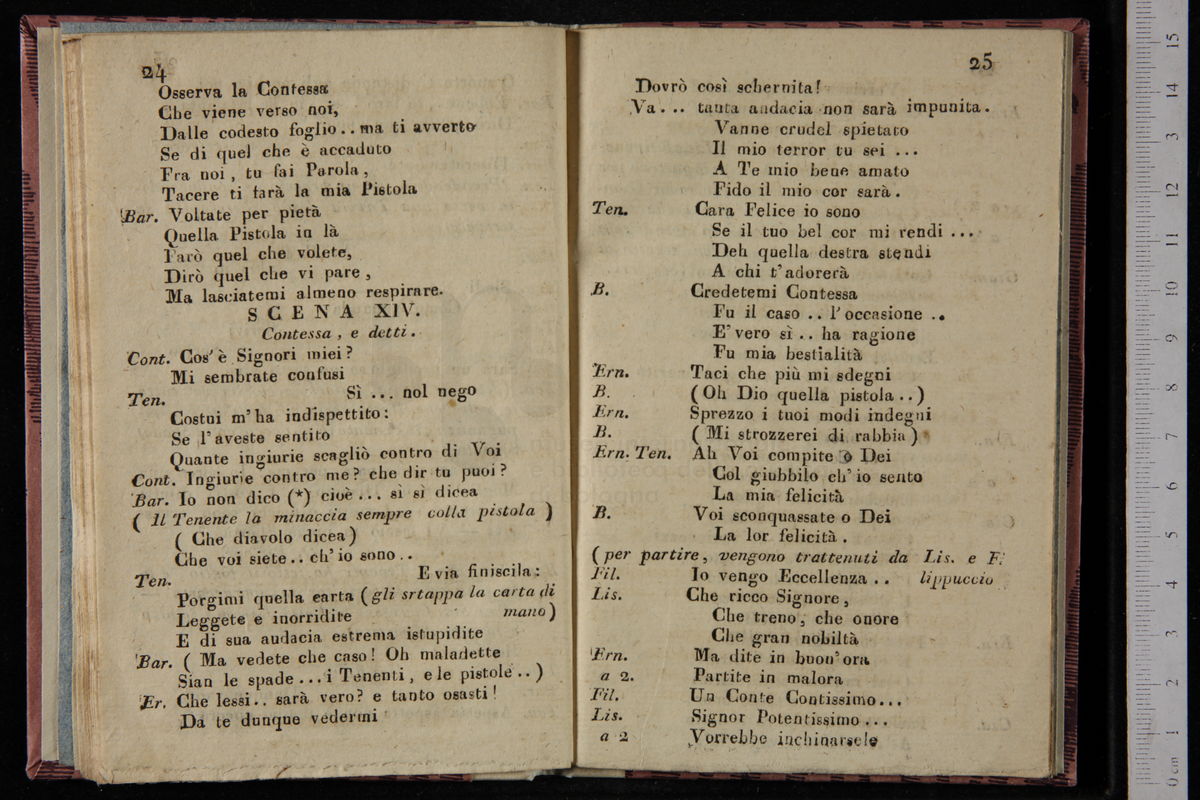 24
Osserva la Contessa
Che viene verso noi,
Dalle codesto foglio . . ma ti avverto
Se di quel che è accaduto
Fra noi , tu fai Parola ,
Tacere ti farà la mia Pistola
Bar. Voltate per pietà
Quella Pistola in là
Farò quel che volete,
Dirò quel che vi pare ,
Ma lasciatemi almeno respirare.
SCENA XIV.
Contessa , e detti .
Cont. Cos' è Signori miei ?
Mi sembrate confusi
Ten. Sì ... nol nego
Costui m' ha indispettito :
Se l' aveste sentito
Quante ingiurie scagliò contro di Voi
Cont. Ingiurie contro me ? che dir tu puoi ?
Bar. Io non dico (*) cioè . . . sì sì dicea
( Il Tenente la minaccia sempre colla pistola )
( Che diavolo dicea )
Che voi siete . . ch' io sono . .
Ten. E via finiscila :
Porgimi quella carta ( gli srtappa la carta di
Leggete e inorridite mano )
E di sua audacia estrema istupidite
Bar. ( Ma vedete che caso ! Oh maladette
Sian le spade . . . i Tenenti , e le pistole . . )
Er. Che lessi . . sarà vero ? e tanto osasti !
Da te dunque vedermi
25
Dovrò così schernita !
Va . . . tanta audacia non sarà impunita .
Vanne crudel spietato
Il mio terror tu sei ...
A Te mio bene amato
Fido il mio cor sarà .
Ten. Cara Felice io sono
Se il tuo bel cor mi rendi ...
Deh quella destra stendi
A chi t' adorerà
B. Credetemi Contessa
Fu il caso . . l' occasione . .
E' vero sì . . ha ragione
Fu mia bestialità
Ern. Taci che più mi sdegni
B. ( Oh Dio quella pistola . . )
Ern. Sprezzo i tuoi modi indegni
B. ( Mi strozzerei di rabbia )
Ern. Ten. Ah Voi compite o Dei
Col giubbilo ch' io sento
La mia felicità
B. Voi sconquassate o Dei
La lor felicità .
( per partire , vengono trattenuti da Lis. e Fi
Fil. Io vengo Eccellenza . . lippuccio
Lis. Che ricco Signore ,
Che treno , che onore
Che gran nobiltà
Ern. Ma dite in buon' ora
a 2. Partite in malora
Fil. Un Conte Contissimo . . .
Lis. Signor Potentissimo ...
a 2 Vorrebbe inchinarsele